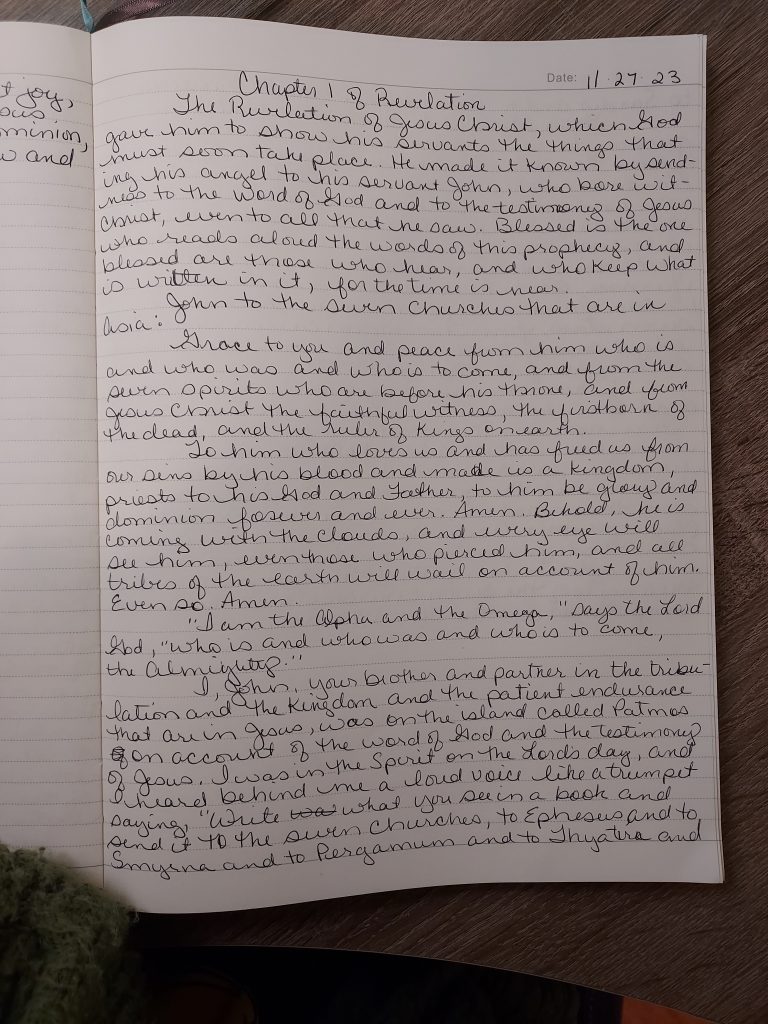 t joy,
minion,
w and
Date: 11·27·23
Chapter 1 of Revelation
The Revelation of Jesus Christ, which God
gave him to show his servants the things that
must soon take place. He made it known by send-
ing his angel to his servant John, who bore wit-
ness to the word of God and to the testimony of Jesus
Christ, even to all that he saw. Blessed is the one
who reads aloud the words of this prophecy, and
blessed are those who hear, and who keep what
is written in it, for the time is near.
John to the seven churches that are in
Asia:
Grace to you and peace from him who is
and who was and who is to come, and from the
seven spirits who are before his throne, and from
Jesus Christ the faithful witness, the firstborn of
the dead, and the ruler of Kings on earth.
To him who loves us and has freed us from
our sins by his blood and made us a kingdom,
priests to his God and Father, to him be glory and
dominion forever and ever. Amen. Behold, he is
coming with the clouds, and every eye will
see him, even those who pierced him, and all
tribes of the earth will wail on account of him.
Even so. Amen.
"I am the Alpha and the Omega," says the Lord
God, "who is and who was and who is to come,
the Almighty."
I, John, your brother and partner in the tribu-
lation and the Kingdom and the patient endurance
that are in Jesus, was on the island called Patmos
on account of the word of God and the testimony
of Jesus. I was in the Spirit on the Lords day, and
I heard behind me a loud voice like a trumpet
saying, "Write what you see in a book and
send it to the seven Churches, to Ephesus and to
Smyrna and to Pergamum and to Thyatira and